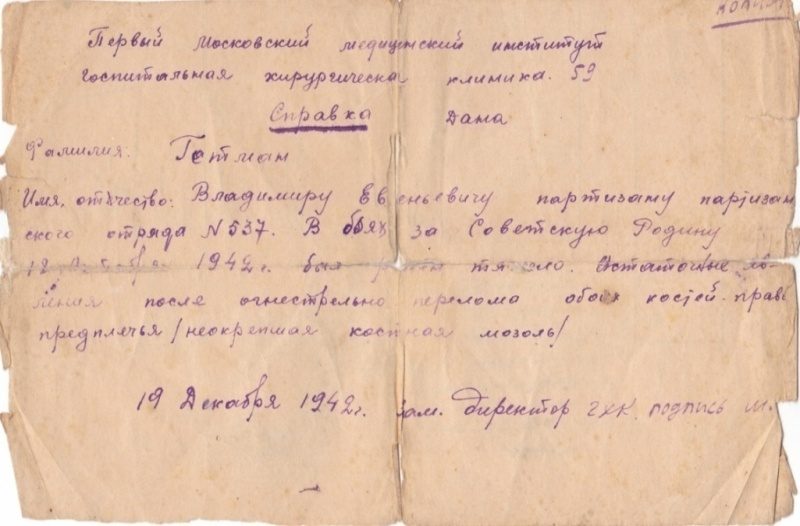 копия
Первый Московский медицинский институт
госпитальная хирургическа клиника. 59
Справка Дана
Фамилия: Гетман
Имя, отчество: Владимиру Евгеньевичу партизану партизан
ского отряда N 537. В боях за Советскую Родину
1942 г. был тяжело. Остаточные яв-
ления после огнестрельно перелома обоих костей прав
предплечья /неокрепшая костная мозоль/
19 Декабря 1942 г. зам. директор ГХК подпись М.